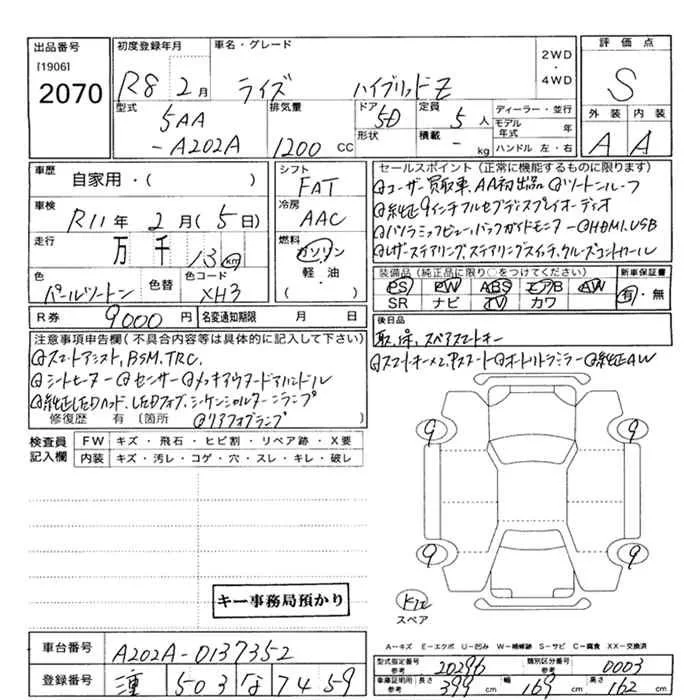 出品番号
[1906]
2070
初度登録年月
R8 2月
車名・グレード
ライズ ハイブリッドZ
2WD
・
4WD
評価点
S
外装 内装
A A
型式
5AA
-A202A
排気量
1200 CC
ドア
5D
形状
定員
5人
積載
- kg
ディーラー・並行
モデル年式 年
ハンドル 左・右
車歴
自家用・( )
車検
R11年 2月(5日)
走行
万 千 13 km
色
パールツートン
色替
色コード
XH3
シフト
FAT
冷房
AAC
燃料
ガソリン
軽・油
( ・ )
R券 9000円
名変通知期限 月 日
セールスポイント(正常に機能するものに限ります)
@ユーザー買取車、AA初出品@ツートンルーフ
@純正9インチフルセグディスプレイオーディオ
@パノラミックビュー、バックガイドモニター@HDMI、USB
@レザーステアリング、ステアリングスイッチ、クルーズコントロール
装備品(純正品に限り○をつけてください)
PS PW ABS エアB AW
SR ナビ TV カワ
新車保証書
有・無
後日品
取、保、スペアスマートキー
@スマートキー×2、Pスタート@オートリトラミラー@純正AW
注意事項申告欄(不具合内容等は具体的に記入して下さい)
@スマートアシスト、BSM、TRC、
@シートヒーター@センサー@メッキアウタードアハンドル
@純正LEDヘッド、LEDフォグ、シーケンシャルターンランプ
修復歴 有 〔箇所 @リアフォグランプ 〕
検査員記入欄
FW キズ・飛石・ヒビ割・リペア跡・X要
内装 キズ・汚レ・コゲ・穴・スレ・キレ・破レ
9 9
9 9
キー事務局預かり
スペア
A-キズ E-エクボ U-凹み W-補修跡 S-サビ C-腐食 XX-交換済
車台番号
A202A-0137352
登録番号
503 な 7459
型式指定番号
参考
20296
類別区分番号
参考
0003
車庫証明用
参考
長さ 399 cm
幅 169 cm
高さ 162 cm